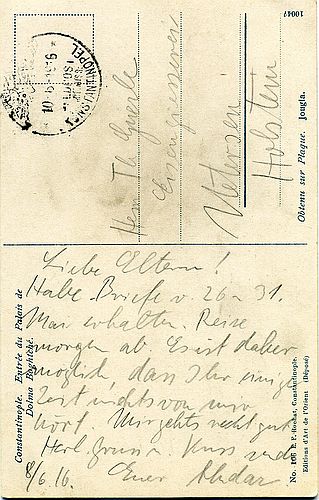 10047
CONSTANTINOPEL
10 6
Herrn Th
Eisengiesserei
Uetersen
Holstein
Obtenu sur Plaque. Jougla.
Liebe Eltern!
Habe Briefe v. 26 - 31.
Mai erhalten. Reise
morgen ab. Es ist daher
möglich, dass Ihr einige
Zeit nichts von mir
hört. Mir gehts recht gut
Herzl. Gruss und
8/6.16. Euer
Constantinople. Entrée du Palais de
Dolma Baghtché.
No. 106 E. F. Rochat, Constantinople.
Editions d'Art de l'Orient (Déposé)